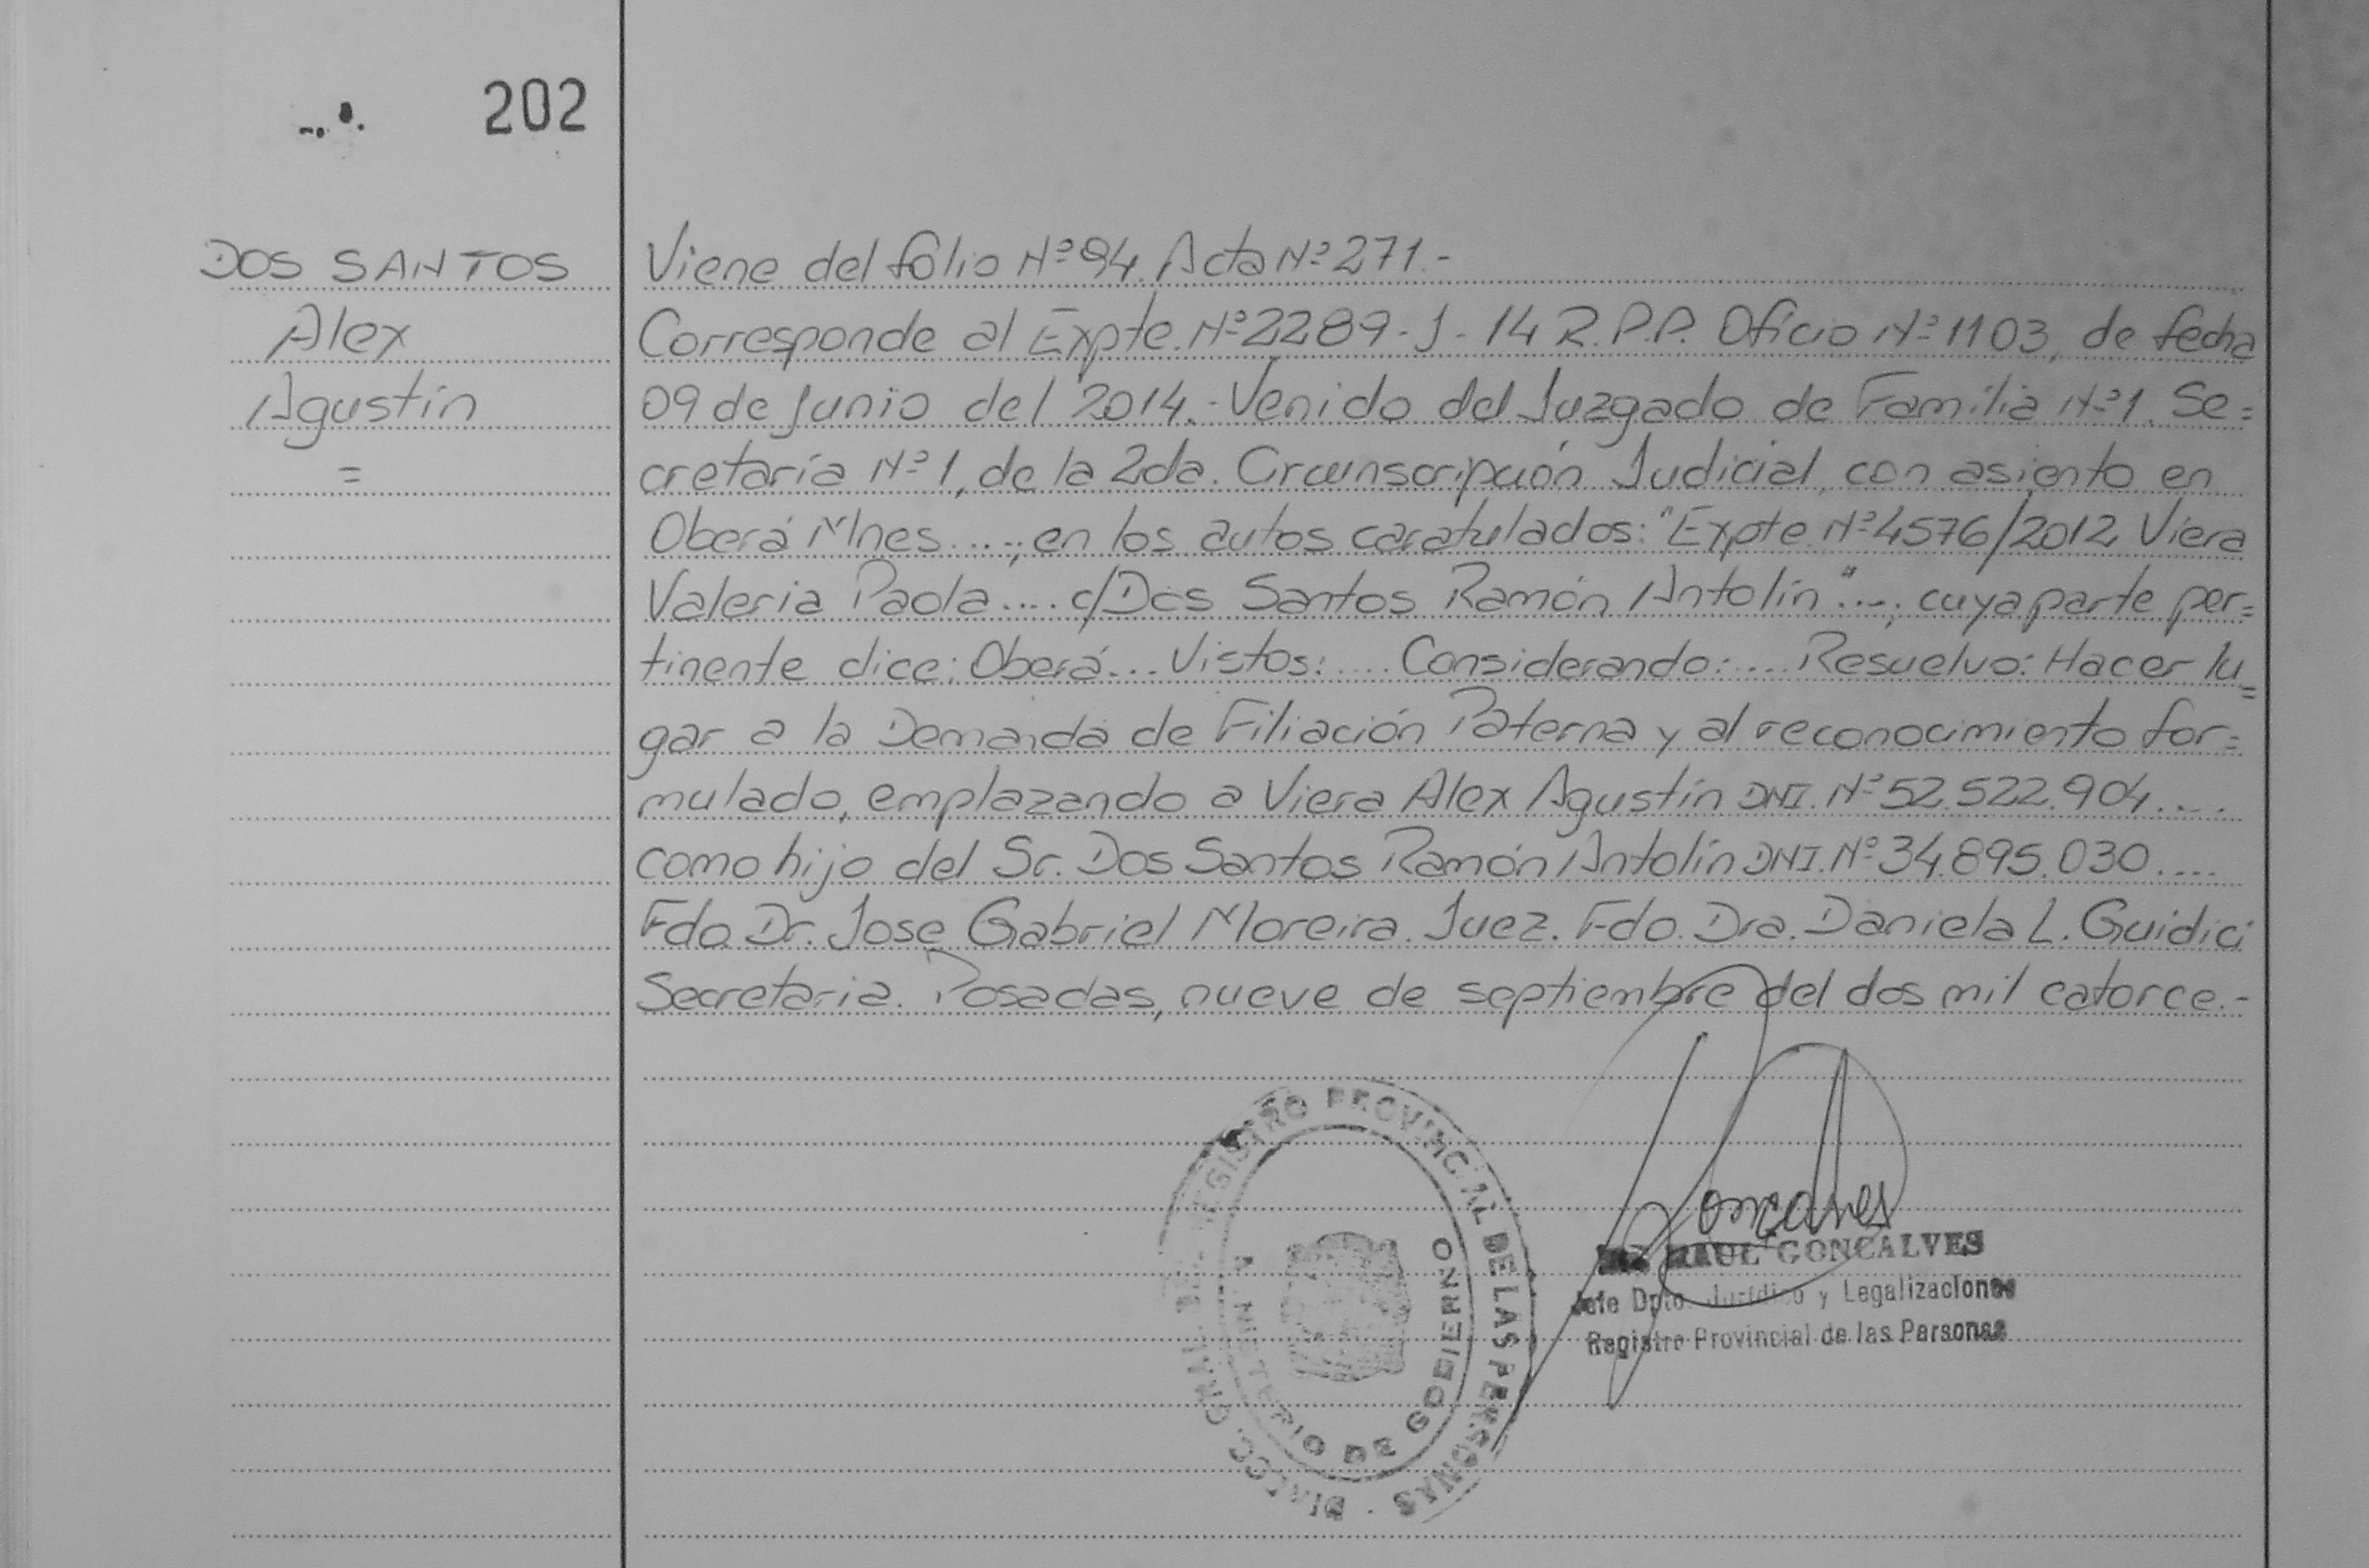 202
DOS SANTOS
Alex
Agustín
=
Viene del fólio Nº 94. Acta Nº 271.-
Corresponde al Expte. Nº 2289 - J - 14 R.P.P. Oficio Nº 1103, de fecha
09 de Junio del 2014.- Venido del Juzgado de Familia Nº 1. Se=
cretaría Nº 1, de la 2da. Circunscripción Judicial, con asiento en
Oberá Mnes....; en los autos caratulados: "Expte Nº 4576/2012 Viera
Valeria Paola.... c/Dos Santos Ramón Antolín"...; cuya parte per=
tinente dice: Oberá... Vistos:.... Considerando:.... Resuelvo: Hacer lu=
gar a la Demanda de Filiación Paterna y al reconocimiento for=
mulado, emplazando a Viera Alex Agustín DNI. Nº 52.522.904....
como hijo del Sr. Dos Santos Ramón Antolín DNI. Nº 34.895.030....
Fdo Dr. Jose Gabriel Moreira. Juez. Fdo. Dra. Daniela L. Guidici
Secretaria. Posadas, nueve de septiembre del dos mil catorce.-
REGISTRO PROVINCIAL DE LAS PERSONAS
DE GOBIERNO
Goncalves
RAUL GONCALVES
Jefe Dpto. Jurídico y Legalizaciones
Registro Provincial de las Personas